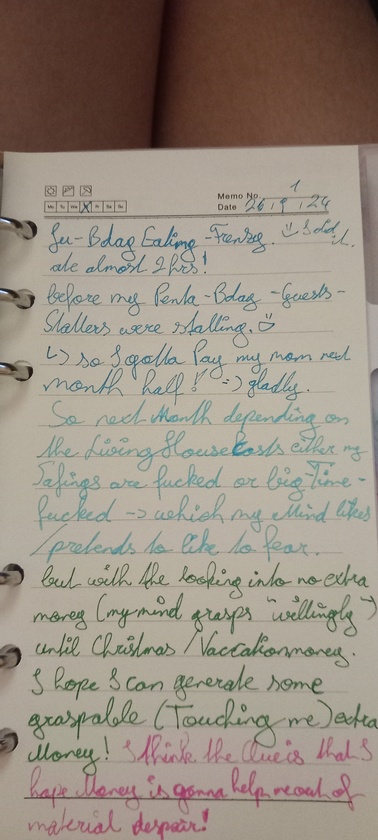 Memo No. 1
Mo Tu We Fr Sa Su
Date 26 9 24
Bday Eating - Frenzy. I did it.
ate almost 2hrs!
before my Penta-Bday-Guests-
Stallers were stalling.
↳ so I gotta Pay my mom next
month half! =) gladly.
So next Month depending on
the Living House Costs either my
Safings are fucked or big Time-
fucked -> which my Mind likes
/pretends to like to fear.
but with the looking into no extra
money (my mind grasps "willingly")
until Christmas / Vaccationmoney.
I hope I can generate some
graspable (Touching me) extra
Money! I think the Clue is that I
hope Money is gonna help me out of
material despair!